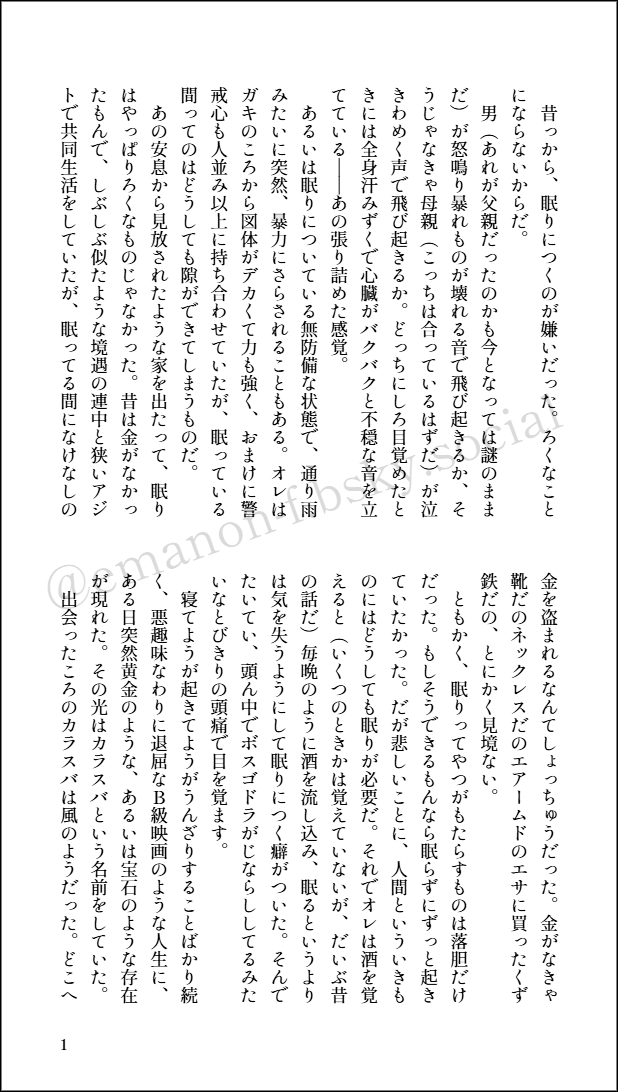 昔っから、眠りにつくのが嫌いだった。ろくなこと
にならないからだ。
男（あれが父親だったのかも今となっては謎のまま
だ）が怒鳴り暴れものが壊れる音で飛び起きるか、そ
うじゃなきゃ母親（こっちは合っているはずだ）が泣
きわめく声で飛び起きるか。どっちにしろ目覚めたと
きには全身汗みずくで心臓がバクバクと不穏な音を立
てている――あの張り詰めた感覚。
あるいは眠りについている無防備な状態で、通り雨
みたいに突然、暴力にさらされることもある。オレは
ガキのころから図体がデカくて力も強く、おまけに警
戒心も人並み以上に持ち合わせていたが、眠っている
間ってのはどうしても隙ができてしまうものだ。
あの安息から見放されたような家を出たって、眠り
はやっぱりろくなものじゃなかった。昔は金がなかっ
たもんで、しぶしぶ似たような境遇の連中と狭いアジ
トで共同生活をしていたが、眠ってる間になけなしの
金を盗まれるなんてしょっちゅうだった。金がなきゃ
靴だのネックレスだのエアームドのエサに買ったくず
鉄だの、とにかく見境ない。
ともかく、眠りってやつがもたらすものは落胆だけ
だった。もしそうできるもんなら眠らずにずっと起き
ていたかった。だが悲しいことに、人間といういきも
のにはどうしても眠りが必要だ。それでオレは酒を覚
えると（いくつのときかは覚えていないが、だいぶ昔
の話だ）毎晩のように酒を流し込み、眠るというより
は気を失うようにして眠りにつく癖がついた。そんで
たいてい、頭ん中でボスゴドラがじならししてるみた
いなとびきりの頭痛で目を覚ます。
寝てようが起きてようがうんざりすることばかり続
く、悪趣味なわりに退屈なB級映画のような人生に、
ある日突然黄金のような、あるいは宝石のような存在
が現れた。その光はカラスバという名前をしていた。
出会ったころのカラスバは風のようだった。どこへ
1
@emanon-f.bsky.social